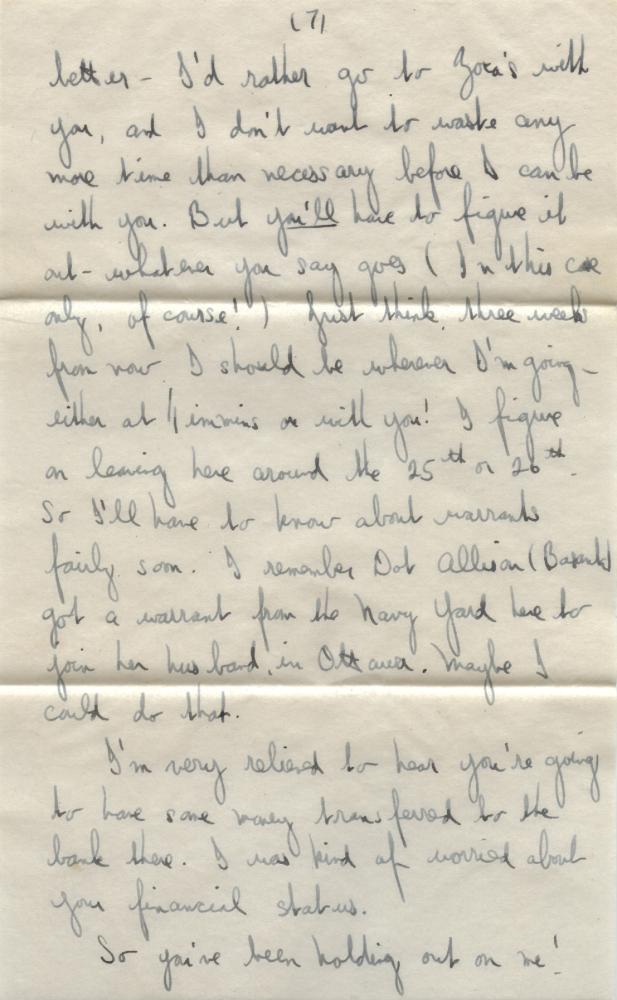 (7)
better - I'd rather go to Zora's with
you, and I don't want to waste any
more time than necessary before I can be
with you. But you'll have to figure it
out - whatever you say goes (In this case
only, of course!) Just think, three weeks
from now I should be wherever I'm going -
either at Timmins or with you! I figure
on leaving here around the 25th or 26th.
So I'll have to know about warrants
fairly soon. I remember Dot Allison
got a warrant from the Navy Yard here to
join her husband, in Ottawa. Maybe I
could do that.
I'm very relieved to hear you're going
to have some money transferred to the
bank there. I was kind of worried about
your financial status.
So you've been holding out on me!